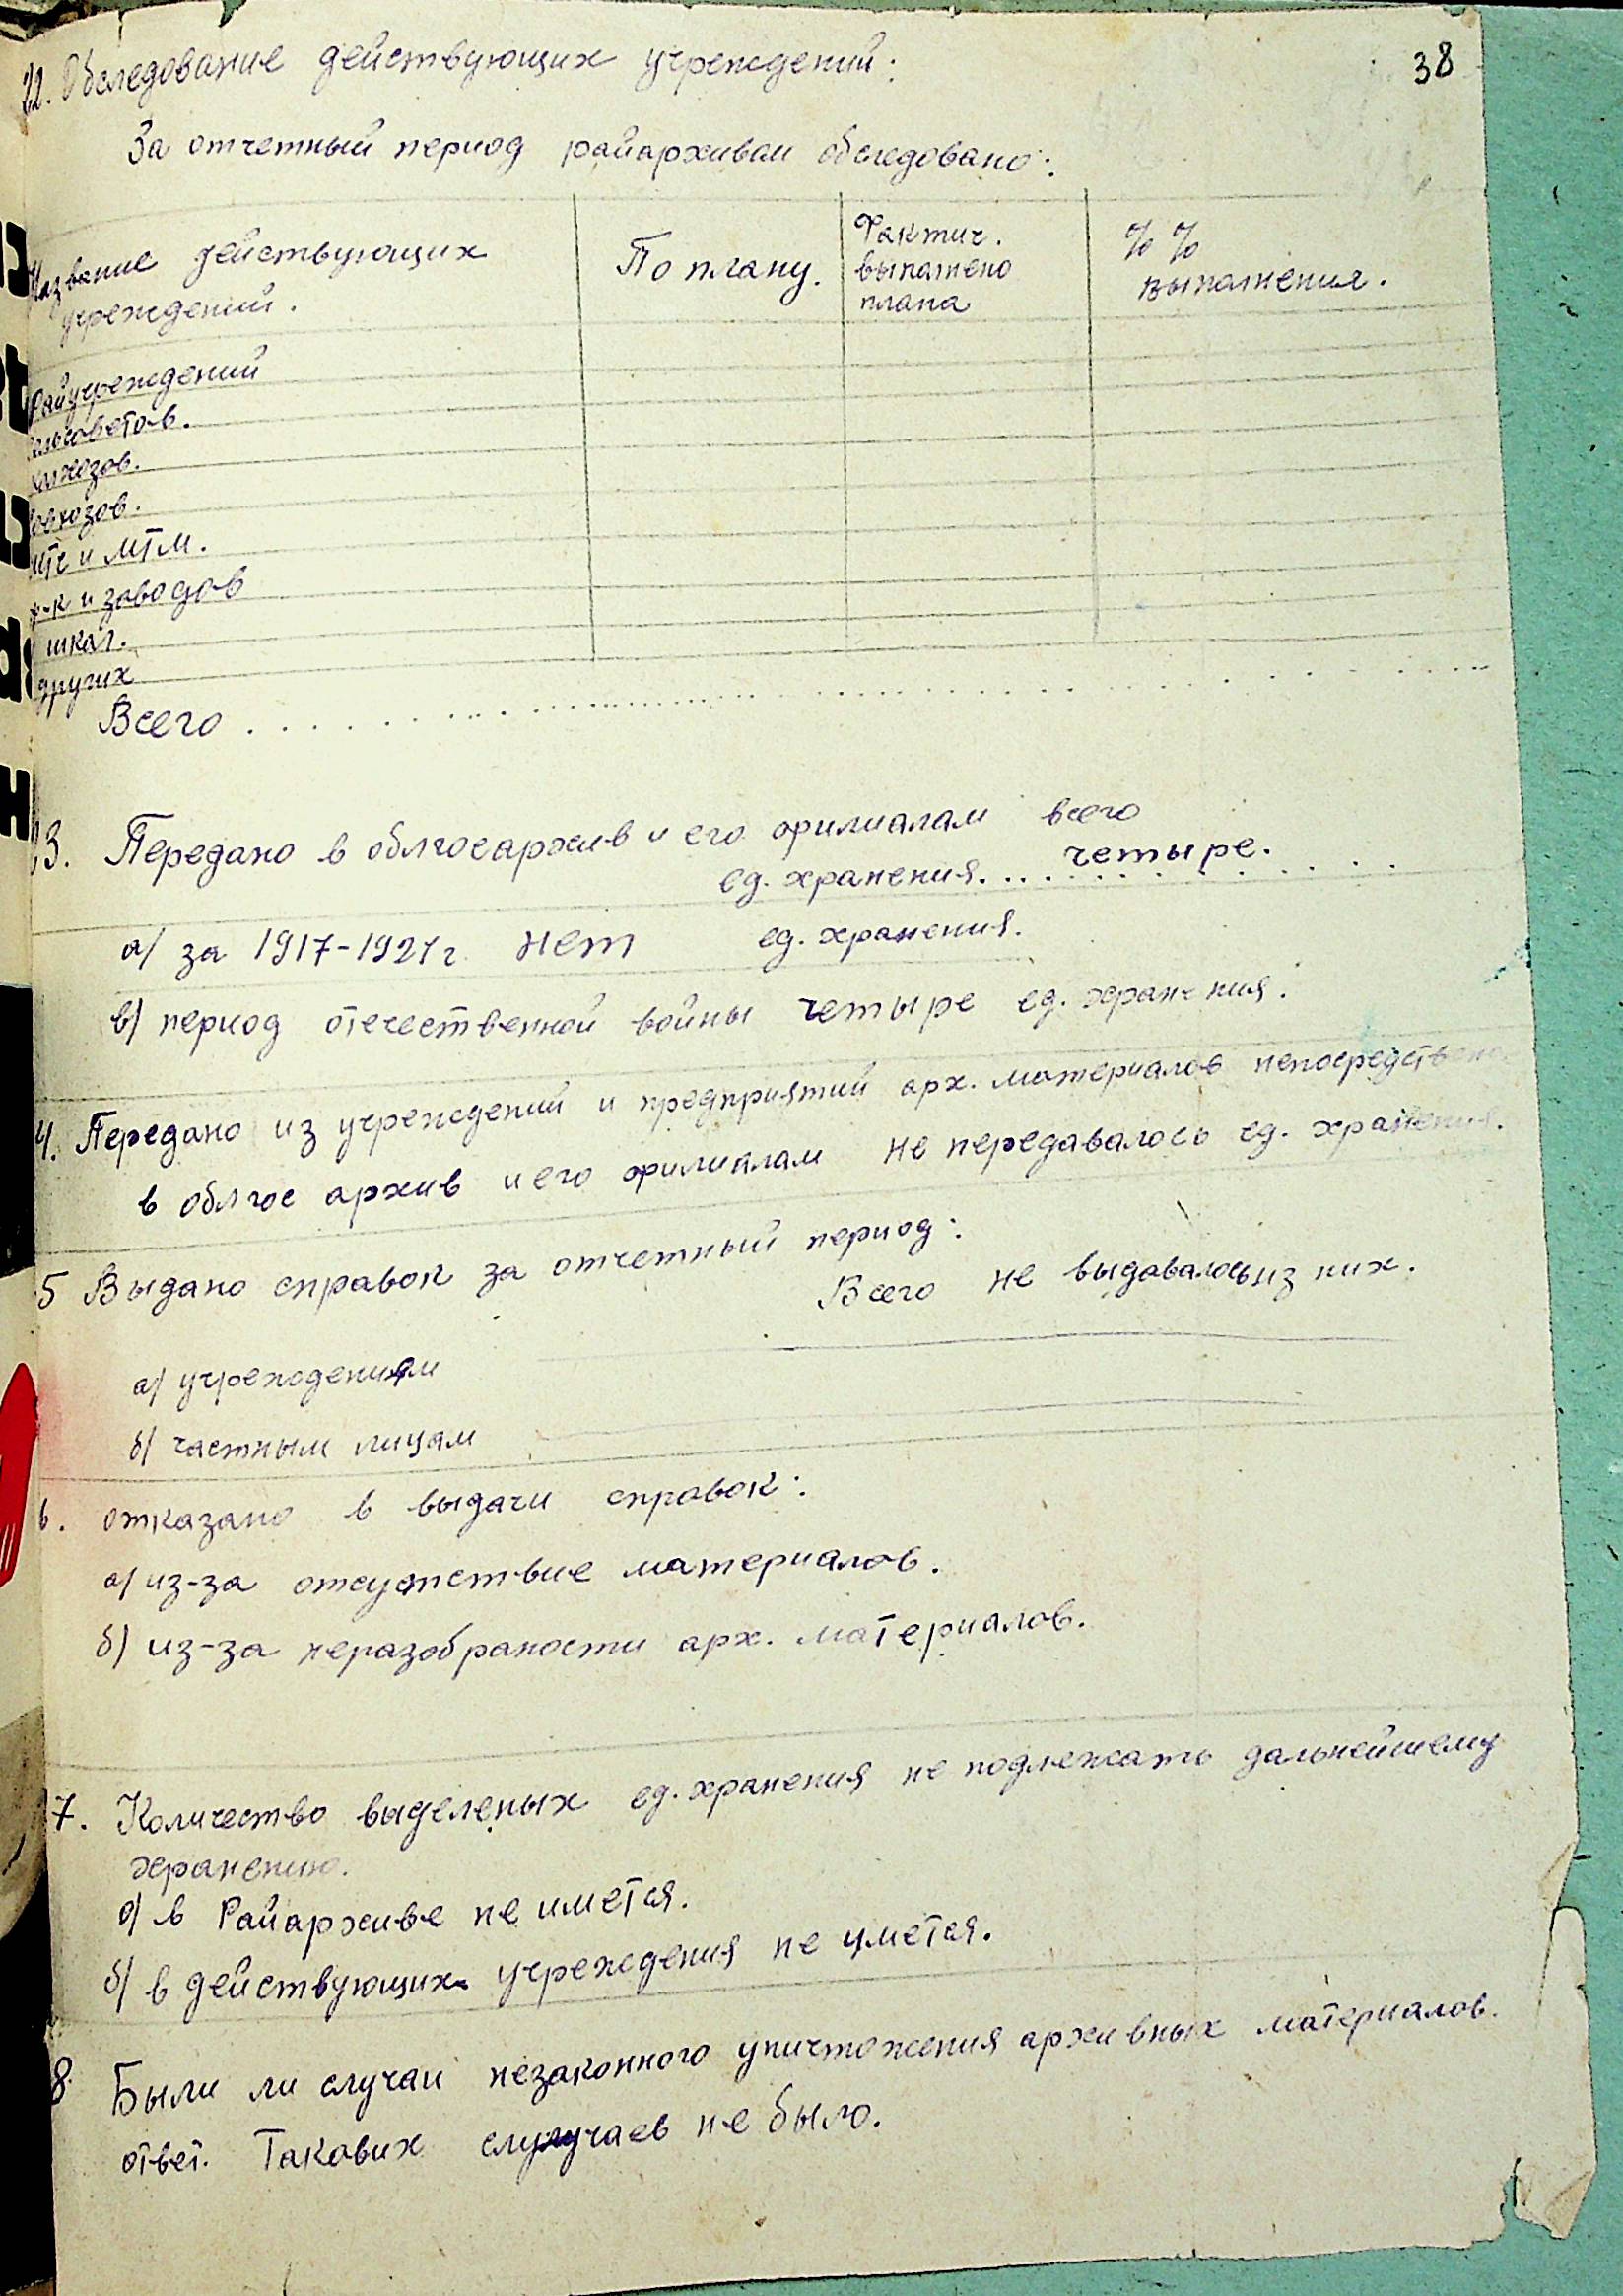 38
22. Обследование действующих учреждений:
За отчетный период райархивом обследовано:
Название действующих учреждений.
По плану.
Фактич. выполнено плана
% % выполнения.
Райучреждений
сельсоветов.
колхозов.
совхозов.
МТС и МТМ.
ф-к и заводов
школ.
других
Всего
23. Передано в облгосархив и его филиалам всего
ед. хранения. четыре.
а) за 1917-1921 г. нет ед. хранения.
в) период отечественной войны четыре ед. хранения.
4. Передано из учреждений и предприятий арх. материалов непосредствено
в облгос архив и его филиалам не передавалось ед. хранения.
5 Выдано справок за отчетный период:
Всего не выдавалось из них.
а) учреждениям
б) частным лицам
6. отказано в выдачи справок:
а) из-за отсутствие материалов.
б) из-за неразобраности арх. материалов.
7. Количество выделеных ед. хранения не подлежать дальнейшему
хранению.
а) в Райархиве не имется.
б) в действующих учреждения не имется.
8 Были ли случаи незаконного уничтожения архивных материалов.
ответ. Такових случаев не было.